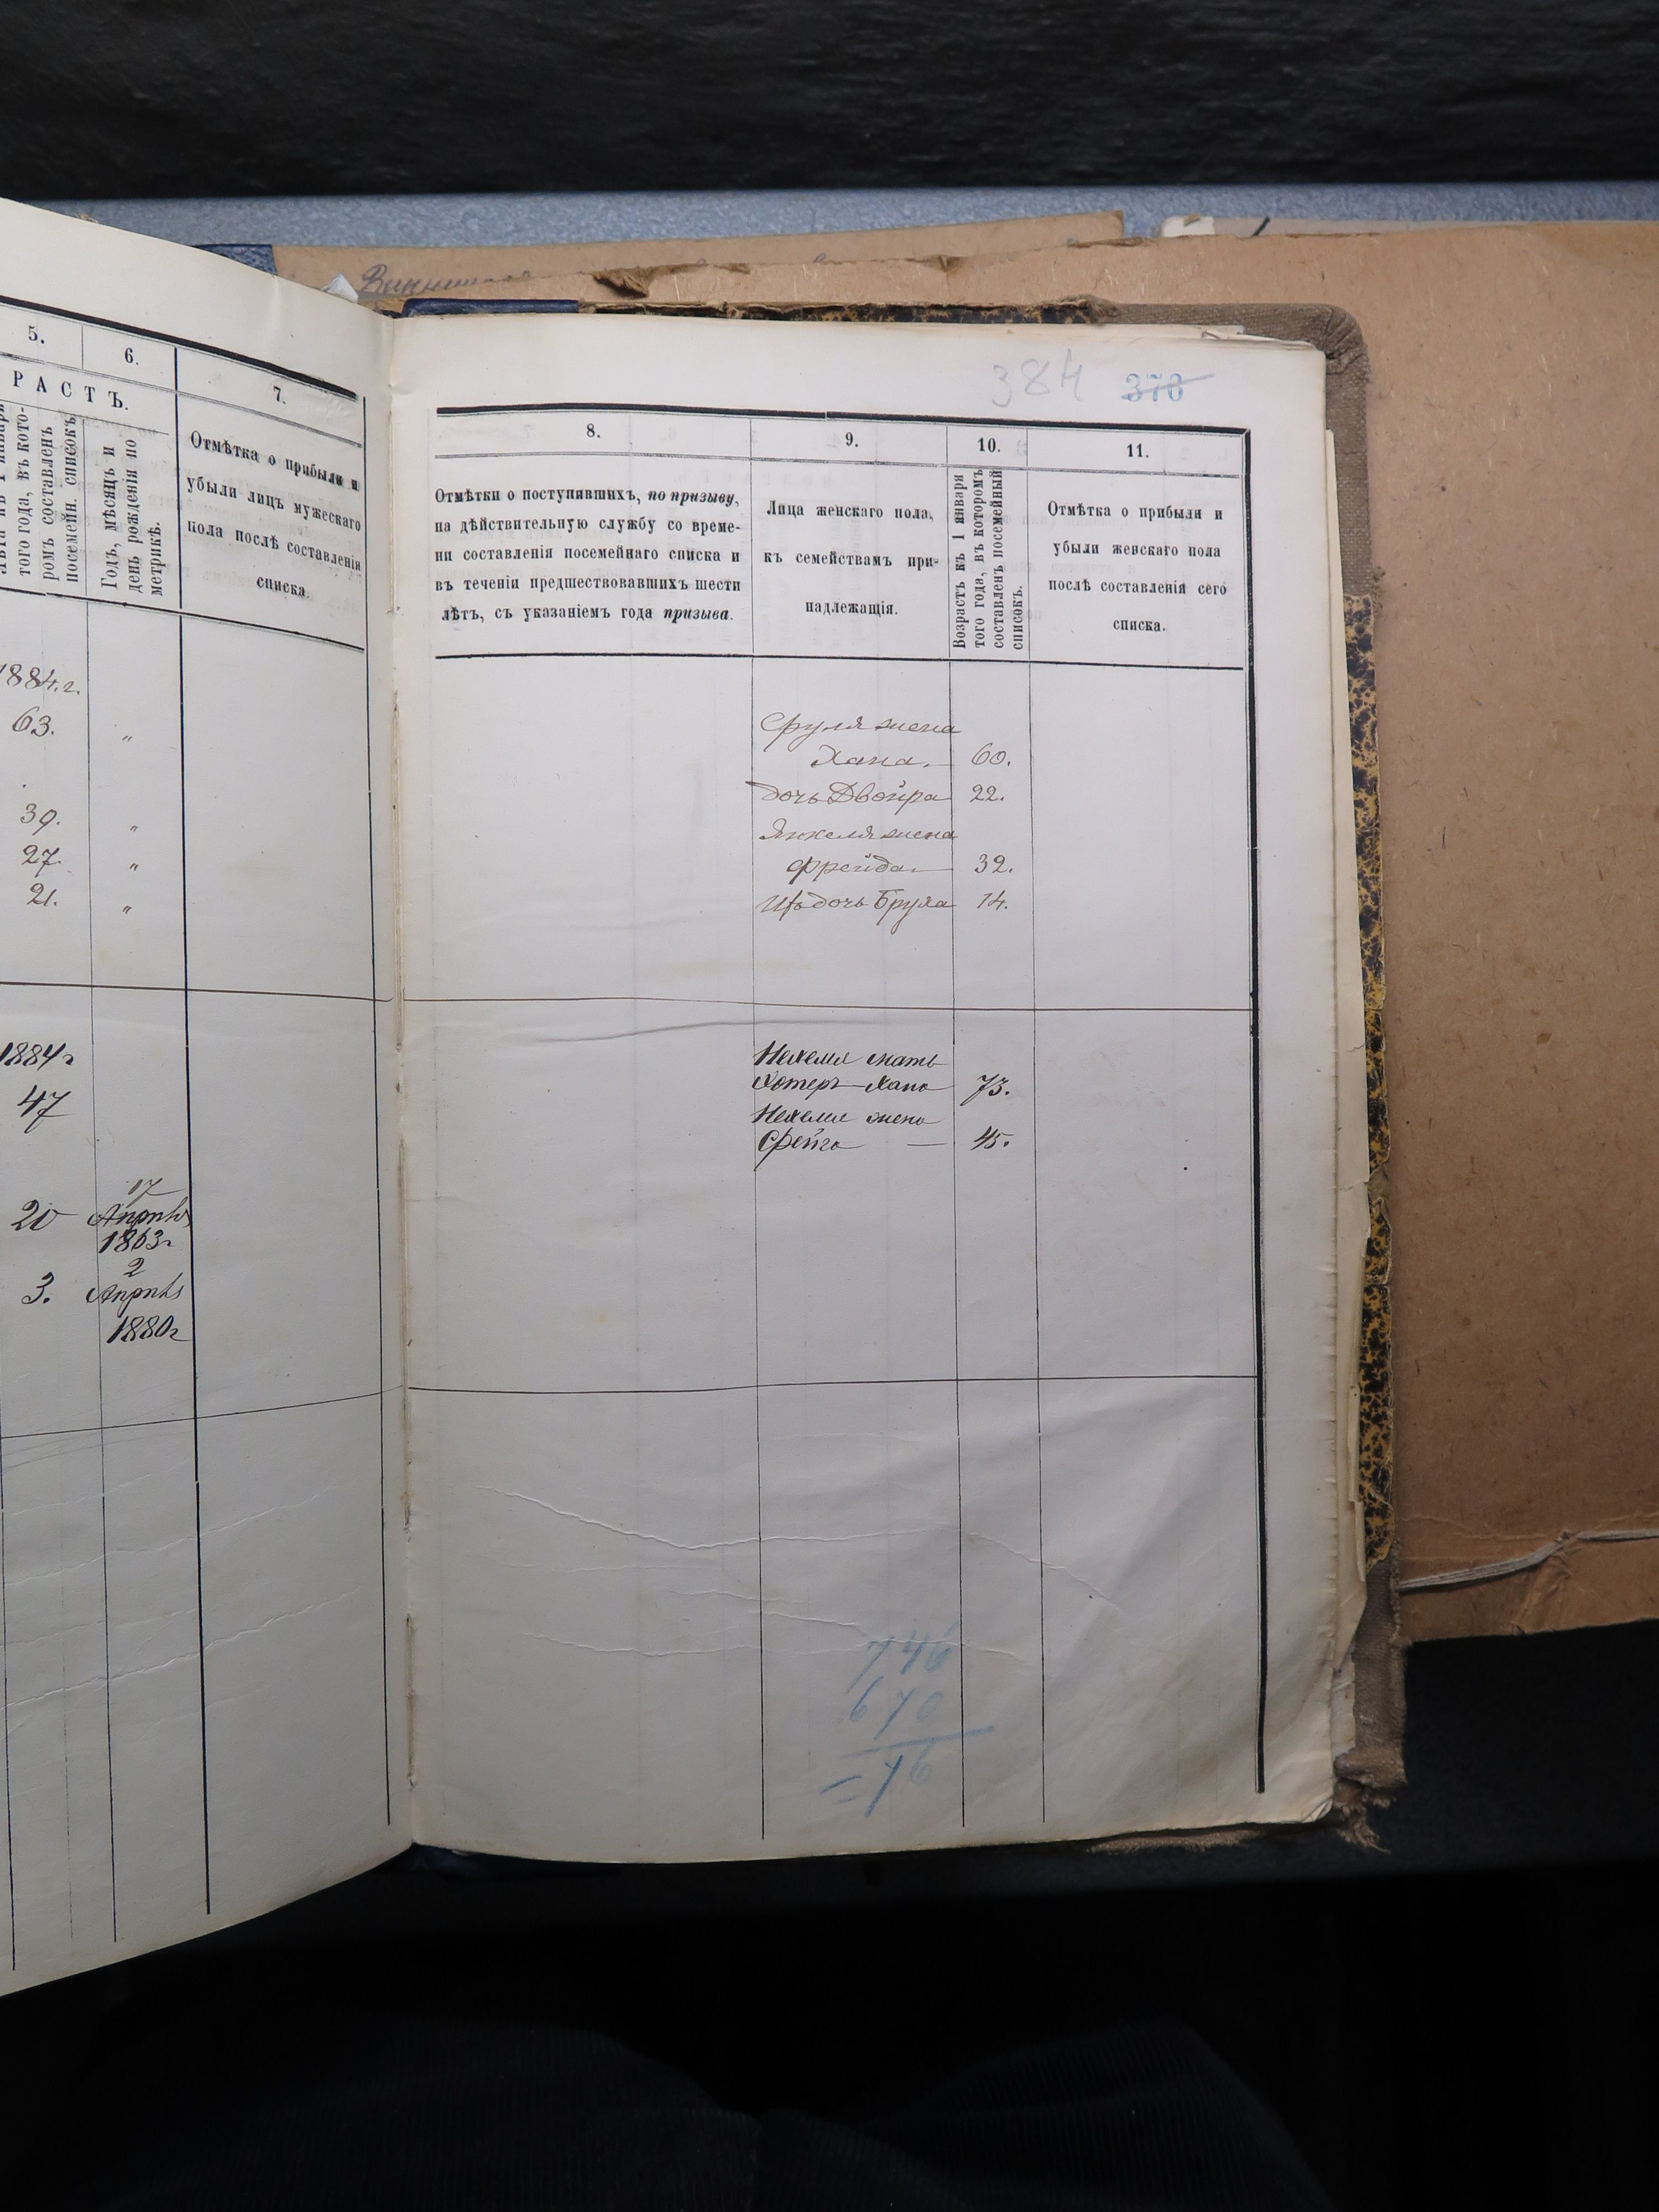 5.
6.
7.
РАСТЪ.
того года, въ кото-
ромъ составленъ
посемейн. списокъ
Годъ, мѣсяцъ и
день рожденія по
метрикѣ.
Отмѣтка о прибыли и
убыли лицъ мужескаго
пола послѣ составленія
списка.
1884.г.
63. "
39. "
27. "
21. "
1884г
47
17
20 Апрѣль
1863г
2
3. Апрѣль
1880г
384 378
8.
9.
10.
11.
Отмѣтки о поступившихъ, по призыву,
на дѣйствительную службу со време-
ни составленія посемейнаго списка и
въ теченіи предшествовавшихъ шести
лѣтъ, съ указаніемъ года призыва.
Лица женскаго пола,
къ семействамъ при-
надлежащія.
Возрастъ къ 1 января
того года, въ которомъ
составленъ посемейный
списокъ.
Отмѣтка о прибыли и
убыли женскаго пола
послѣ составленія сего
списка.
Сруля жена
Хана. 60.
дочь Двойра 22.
Янкеля жена
Фрейда 32.
Ихъ дочь Бруха 14.
Нехемя мать
Хана 73.
Нехемя жена
Фейга — 45.
746
670
= 76